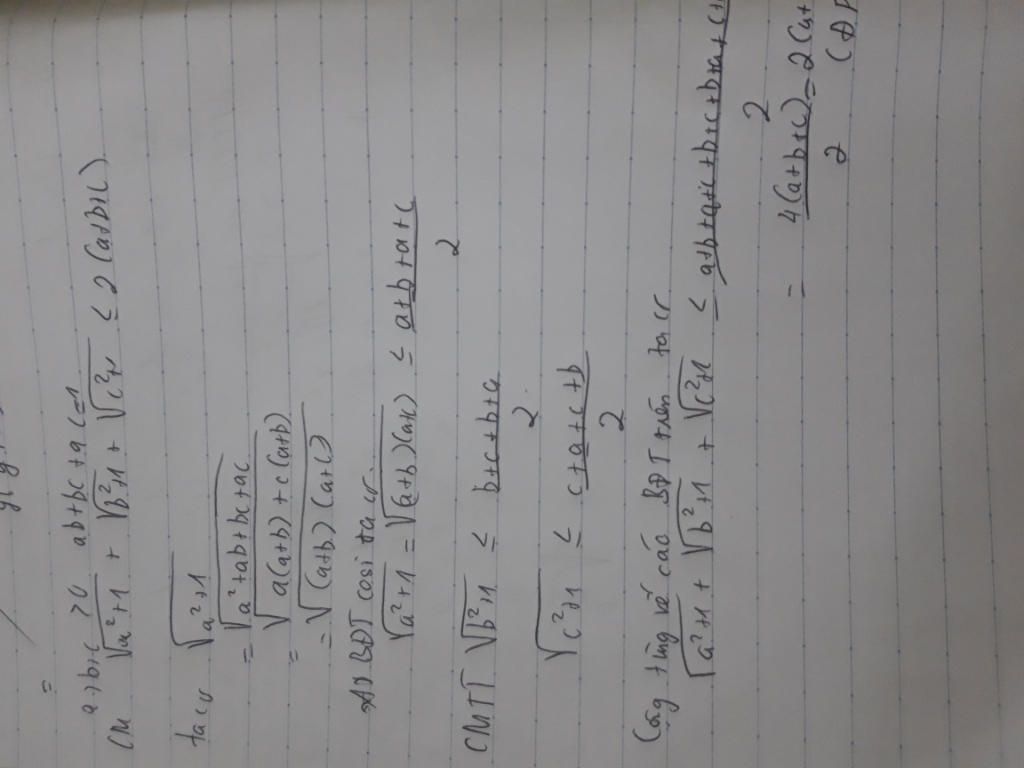 =
a+b+c > 0 ab+bc+ac=1
CM √(a²+1) + √(b²+1) + √(c²+1) ≤ 2(a+b+c)
ta có √(a²+1)
= √(a²+ab+bc+ac)
= √(a(a+b)+c(a+b))
= √((a+b)(a+c))
AD BĐT cosi ta có
√(a²+1) = √((a+b)(a+c)) ≤ (a+b+a+c)/2
CMTT √(b²+1) ≤ (b+c+b+a)/2
√(c²+1) ≤ (c+a+c+b)/2
Cộng từng vế các BĐT trên ta có
√(a²+1) + √(b²+1) + √(c²+1) ≤ (a+b+a+c+b+c+b+a+c+)/2
= 4(a+b+c)/2 = 2(a+